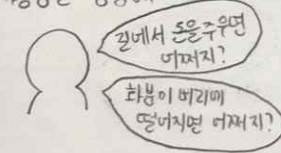 길에서 돈을 주우면
어쩌지?
화분이 머리에
떨어지면 어쩌지?